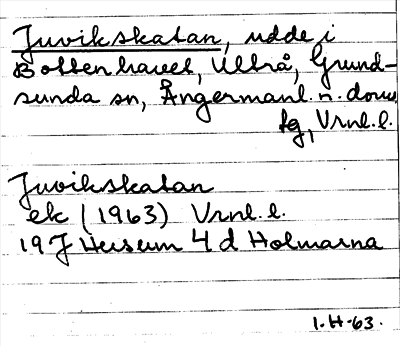 Juvikskatan, udde i
Bottenhavet, Ultrå, Grund-
sunda sn, Ångermanl. n. doms
sg, Vrnl. l.
Juvikskatan
ek (1963) Vrnl. l.
19 J Husum 4 d Holmarna
1.H.63.